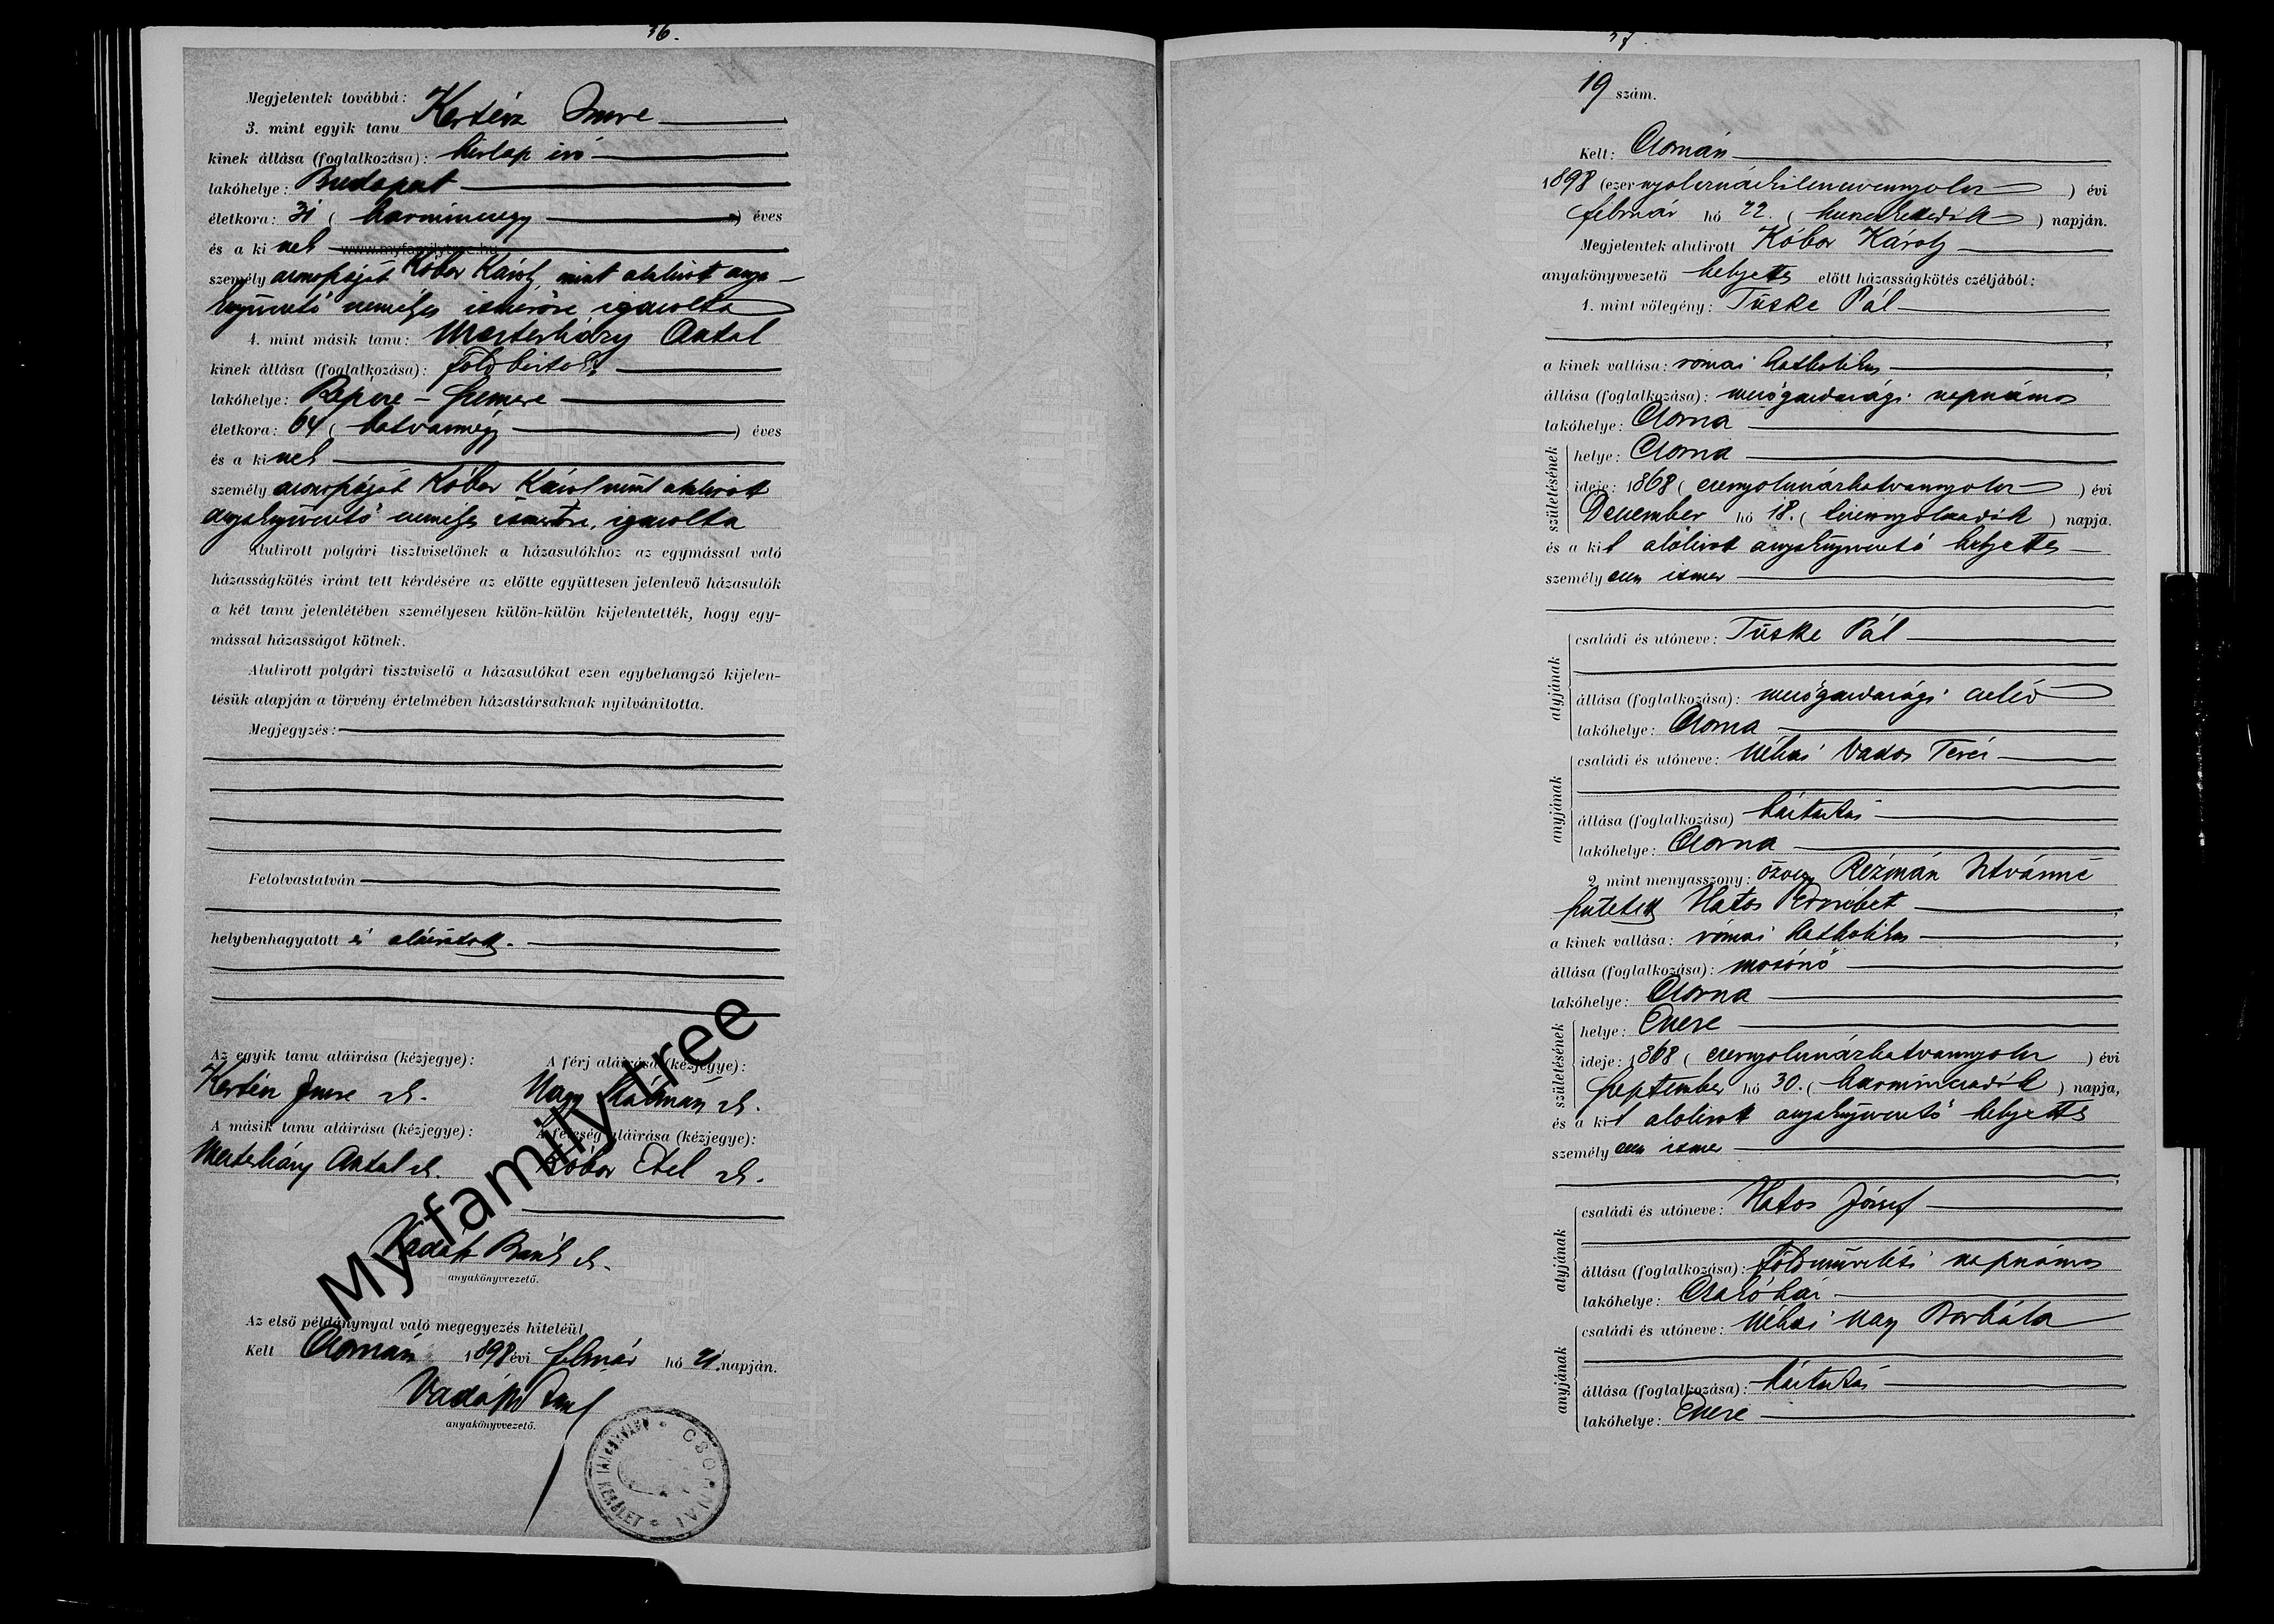 36.
Megjelentek továbbá:
3. mint egyik tanu Kertész Imre
kinek állása (foglalkozása): hirlap iró
lakóhelye: Budapest
életkora: 31 ( harminczegy ) éves
és a kinek www.myfamilytree.hu
személyazonosságát Kóbor Károly, mint alulirott anya-
könyvvezető személyes ismerőse igazolta
4. mint másik tanu: Mesterházy Antal
kinek állása (foglalkozása): földbirtokos
lakóhelye: Rápcze-Szemere
életkora: 64 ( hatvannégy ) éves
és a kinek
személyazonosságát Kóbor Károly mint alulirott
anyakönyvvezető személyes ismerőse, igazolta
Alulirott polgári tisztviselőnek a házasulókhoz az egymással való
házasságkötés iránt tett kérdésére az előtte együttesen jelenlevő házasulók
a két tanu jelenlétében személyesen külön-külön kijelentették, hogy egy-
mással házasságot kötnek.
Alulirott polgári tisztviselő a házasulókat ezen egybehangzó kijelen-
tésük alapján a törvény értelmében házastársaknak nyilvánitotta.
Megjegyzés:
Felolvastatván
helybenhagyatott és aláiratott.
Az egyik tanu aláirása (kézjegye):
A férj aláirása (kézjegye):
Kertész Imre sk.
Nagy Kálmán sk.
A másik tanu aláirása (kézjegye):
A feleség aláirása (kézjegye):
Mesterházy Antal sk.
Kóbor Etel sk.
sk.
anyakönyvvezető.
My family tree
Az első példánynyal való megegyezés hiteléül
Kelt Csornán 1898 évi február hó 21. napján.
anyakönyvvezető.
CSORNAI ANYAKÖNYVI KERÜLET
37.
19 szám.
Kelt: Csornán
1898 (ezernyolczszázkilenczvennyolcz ) évi
február hó 22. ( huszonkettedik ) napján.
Megjelentek alulirott Kóbor Károly
anyakönyvvezető helyettes előtt házasságkötés czéljából:
1. mint vőlegény: Tüske Pál
a kinek vallása: római katholikus
állása (foglalkozása): mezőgazdasági napszámos
lakóhelye: Csorna
születésének
helye: Csorna
ideje: 1868 ( ezernyolczszázhatvannyolcz ) évi
December hó 18. ( tizennyolczadik ) napja.
és a kit alulirott anyakönyvvezető helyettes
személyesen ismer
atyjának
családi és utóneve: Tüske Pál
állása (foglalkozása): mezőgazdasági cseléd
lakóhelye: Csorna
anyjának
családi és utóneve: Néhai Vados Teréz
állása (foglalkozása) háztartás
lakóhelye: Csorna
2. mint menyasszony: özvegy Rézmán Istvánné
született Hatos Erzsébet
a kinek vallása: római katholikus
állása (foglalkozása): mosónő
lakóhelye: Csorna
születésének
helye: Enese
ideje: 1868 ( ezernyolczszázhatvannyolcz ) évi
September hó 30. ( harminczadik ) napja,
és a kit alulirott anyakönyvvezető helyettes
személyesen ismer
atyjának
családi és utóneve: Hatos József
állása (foglalkozása): földmüvelési napszámos
lakóhelye:
anyjának
családi és utóneve: Néhai Nagy Borbála
állása (foglalkozása): háztartás
lakóhelye: Enese